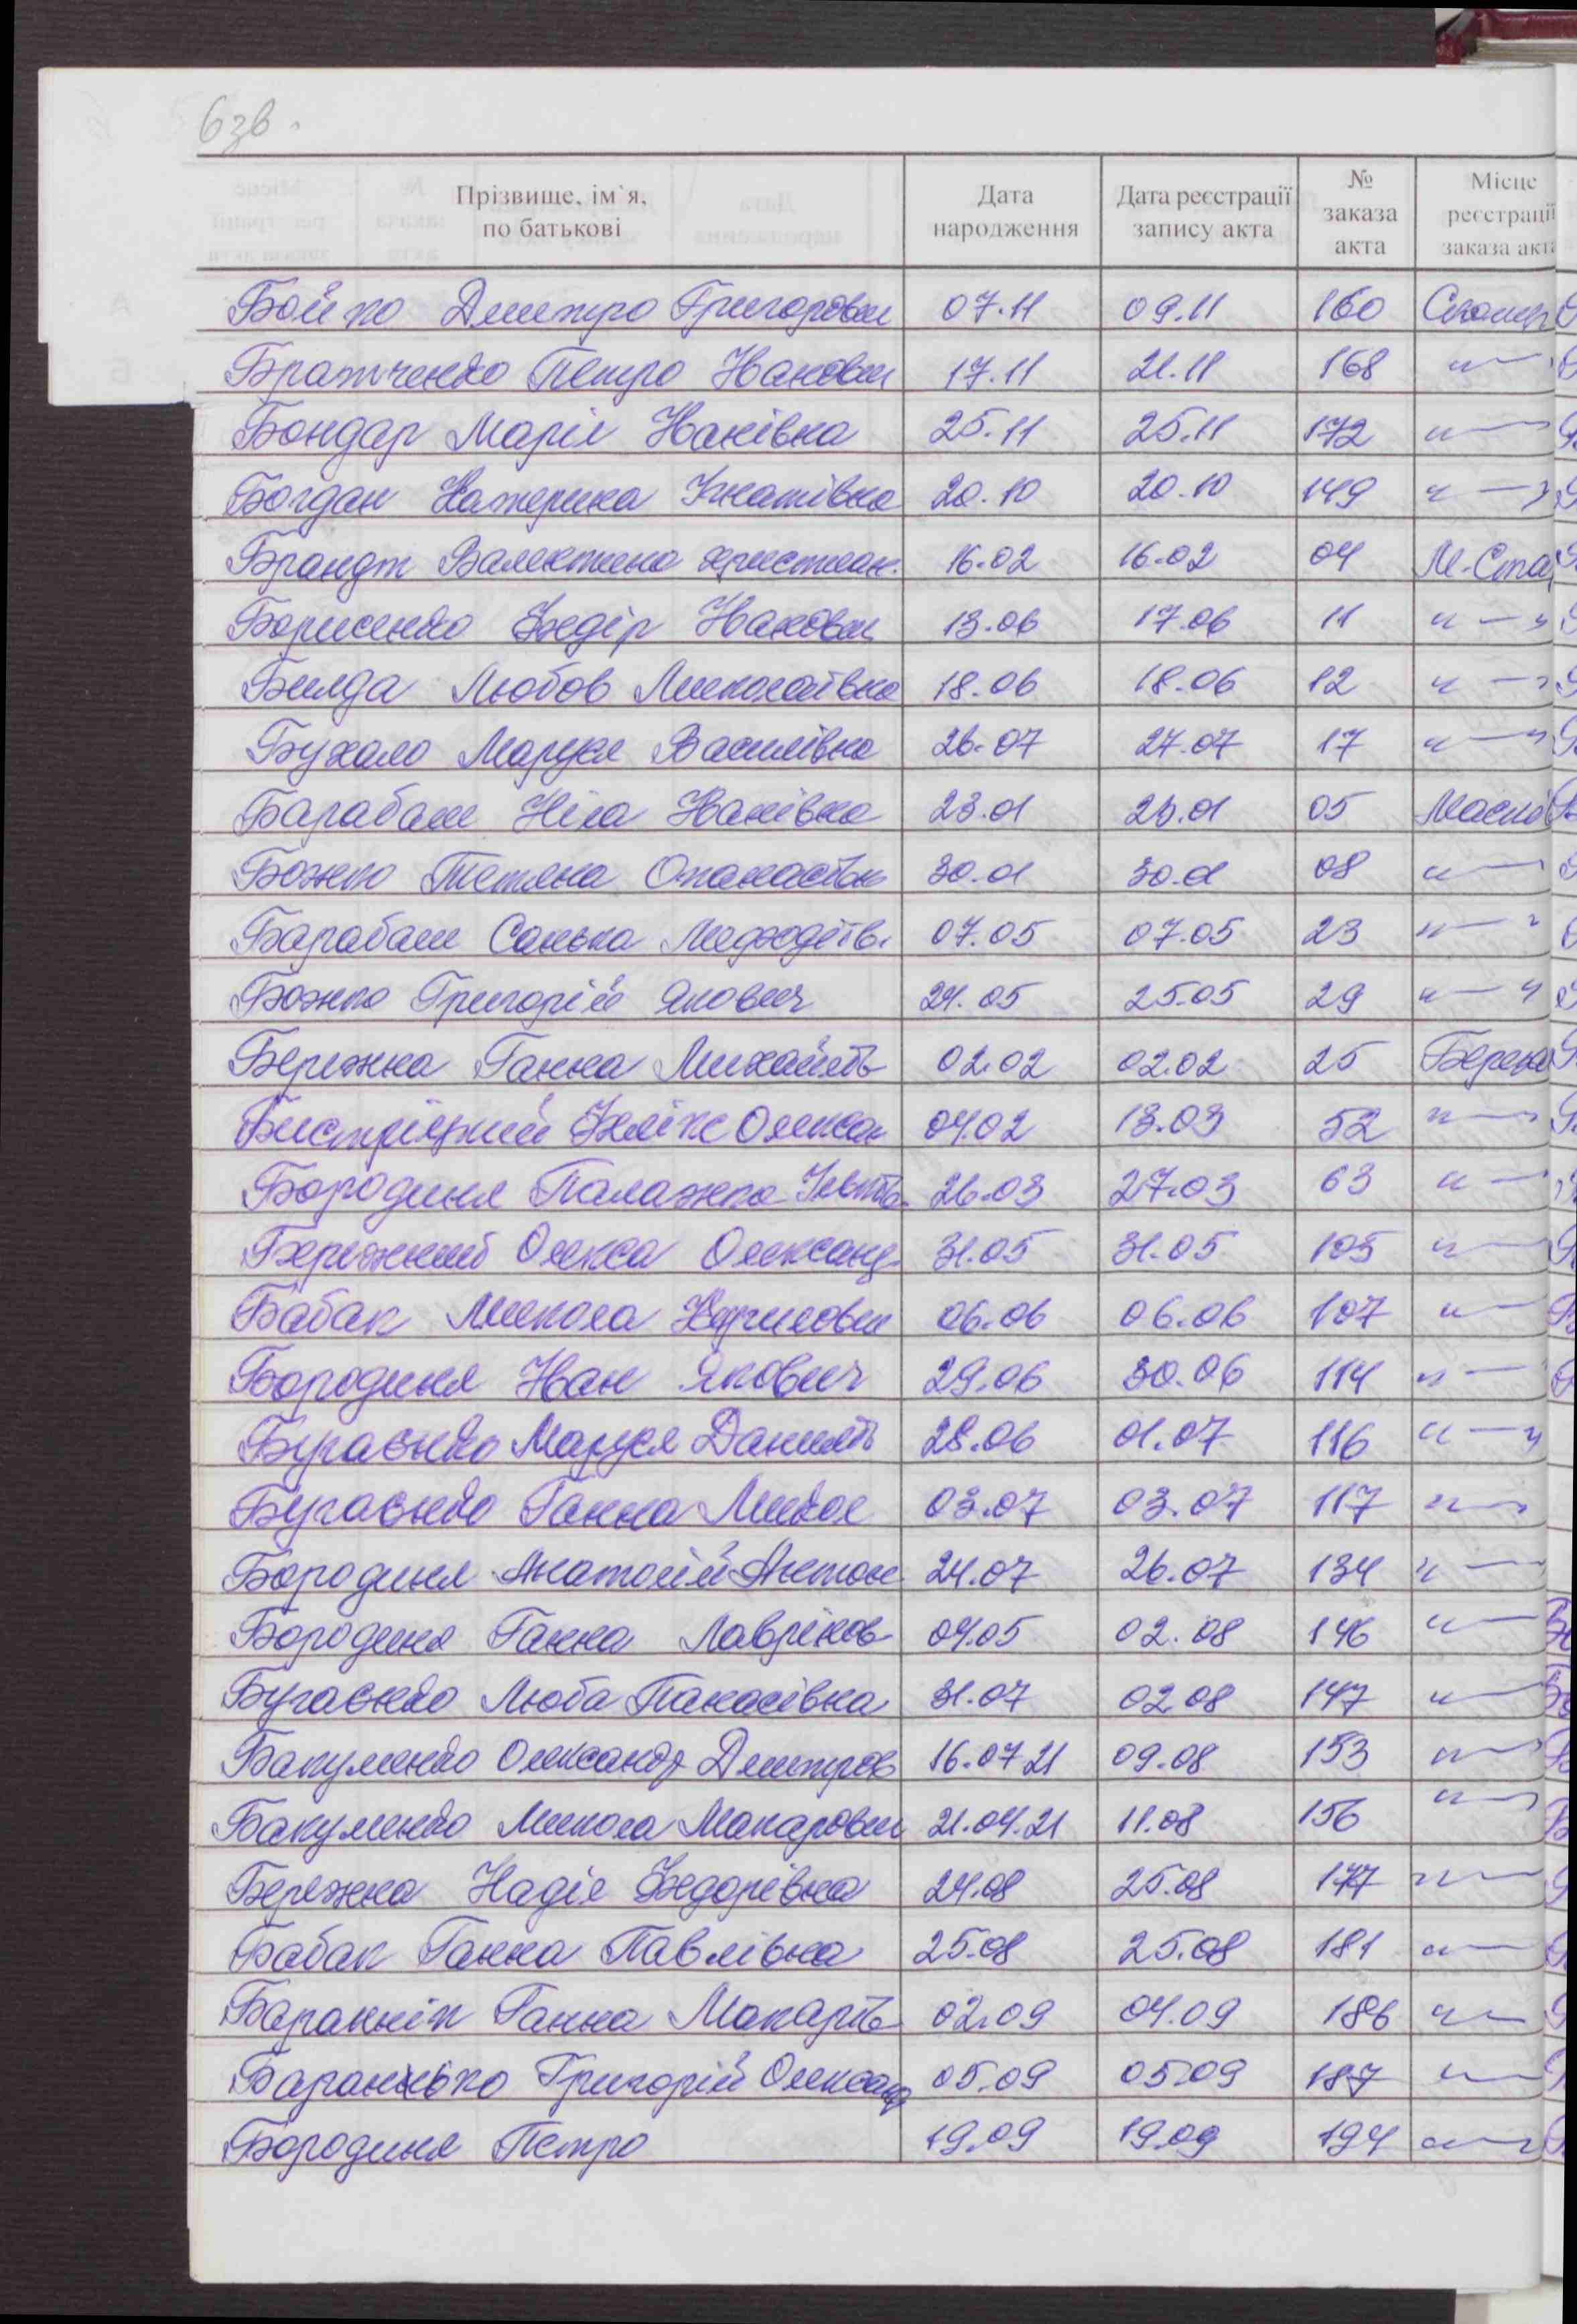 6зв.
Прізвище, ім`я, по батькові Дата народження Дата реєстрації запису акта № заказа акта Місце реєстрації заказа акта
Бойко Дмитро Григорович 07.11 09.11 160
Братченко Петро Іванович 17.11 21.11 168 "—"
Бондар Марія Іванівна 25.11 25.11 172 "—"
Богдан Катерина Ігнатівна 20.10 20.10 149 "—"
Брандт Валентина Християн. 16.02 16.02 04 М-Ста
Борисенко Федір Іванович 13.06 17.06 11 "—"
Билда Любов Миколаївна 18.06 18.06 12 "—"
Бухало Маруся Василівна 26.07 27.07 17 "—"
Барабаш Ніна Іванівна 23.01 23.01 05 Маслів
Божко Тетяна Опанасівн 30.01 30.01 08 "—"
Барабаш Санька Мефодіїв. 07.05 07.05 23 "—"
Божко Григорій Якович 24.05 25.05 29 "—"
Бережна Ганна Михайлів 02.02 02.02 25 Береж
Фелікс Олексан 04.02 13.03 52 "—"
Бородиня Палажка 26.03 27.03 63 "—"
Бережний Олекса Олександ 31.05 31.05 105 "—"
Бабак Микола Кирилович 06.06 06.06 107 "—"
Бородиня Іван Якович 29.06 30.06 114 "—"
Бугаєнко Маруся Данилів 28.06 01.07 116 "—"
Бугаєнко Ганна Микол 03.07 03.07 117 "—"
Бородиня Анатолій Антон 24.07 26.07 134 "—"
Бородиня Ганна Лаврінов 04.05 02.08 146 "—"
Бугаєнко Люба Панасівна 31.07 02 08 147 "—"
Бакуменко Олександр Дмитров 16.07 21 09.08 153 "—"
Бакуменко Микола Макарович 21.04.21 11.08 156 "—"
Бережна Надія Федорівна 24.08 25.08 177 "—"
Бабак Ганна Павлівна 25.08 25.08 181 "—"
Бараннік Ганна Макарів 02.09 04.09 186 "—"
Баранько Григорій Олександ 05.09 05.09 187 "—"
Бородиня Петро 19.09 19.09 194 "—"